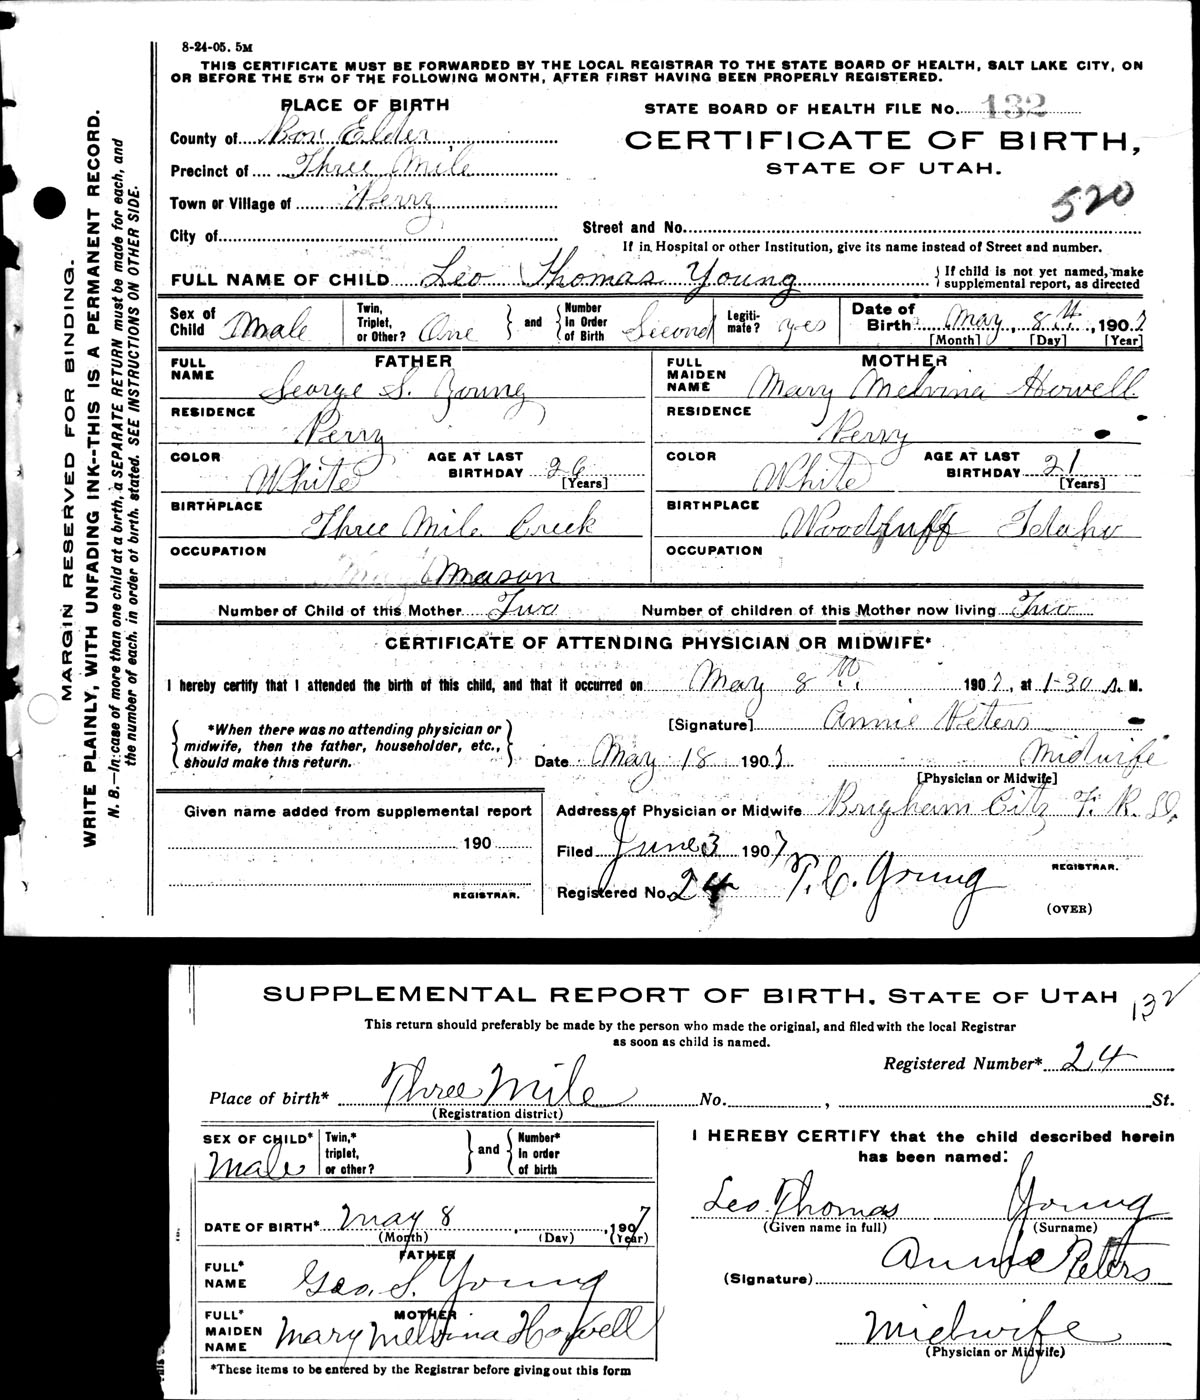 8-24-05. 5M
THIS CERTIFICATE MUST BE FORWARDED BY THE LOCAL REGISTRAR TO THE STATE BOARD OF HEALTH, SALT LAKE CITY, ON
OR BEFORE THE 5TH OF THE FOLLOWING MONTH, AFTER FIRST HAVING BEEN PROPERLY REGISTERED.
MARGIN RESERVED FOR BINDING.
WRITE PLAINLY, WITH UNFADING INK--THIS IS A PERMANENT RECORD.
N. B.—In case of more than one child at a birth, a SEPARATE RETURN must be made for each, and
the number of each, in order of birth, stated. SEE INSTRUCTIONS ON OTHER SIDE.
PLACE OF BIRTH
STATE BOARD OF HEALTH FILE No. 132
County of Box Elder,
CERTIFICATE OF BIRTH,
Precinct of Three Mile
STATE OF UTAH.
520
Town or Village of Perry
City of
Street and No.
If in Hospital or other Institution, give its name instead of Street and number.
FULL NAME OF CHILD Leo Thomas Young
If child is not yet named, make
supplemental report, as directed
Sex of Child Male
Twin, Triplet, or Other? One
and
Number In Order of Birth Second
Legiti-mate? yes
Date of Birth May 8th, 1907
[Month] [Day] [Year]
FATHER
FULL NAME George S. Young
MOTHER
FULL MAIDEN NAME Mary Melvina Howell
RESIDENCE Perry
RESIDENCE Perry
COLOR White
AGE AT LAST BIRTHDAY 26 [Years]
COLOR White
AGE AT LAST BIRTHDAY 21 [Years]
BIRTHPLACE Three Mile Creek
BIRTHPLACE Woodruff Idaho
OCCUPATION Mason
OCCUPATION
Number of Child of this Mother Two
Number of children of this Mother now living Two
CERTIFICATE OF ATTENDING PHYSICIAN OR MIDWIFE*
I hereby certify that I attended the birth of this child, and that it occurred on May 8th 1907, at 1-30 A. M.
*When there was no attending physician or
midwife, then the father, householder, etc.,
should make this return.
[Signature] Annie Peters
Date May 18 1907
Midwife
[Physician or Midwife]
Given name added from supplemental report
190
REGISTRAR.
Address of Physician or Midwife Brigham City F. R. D.
Filed June 3 1907
REGISTRAR.
Registered No. 24 T. C. Young
(OVER)
SUPPLEMENTAL REPORT OF BIRTH. STATE OF UTAH 132
This return should preferably be made by the person who made the original, and filed with the local Registrar
as soon as child is named.
Registered Number* 24
Place of birth* Three Mile No. , St.
(Registration district)
SEX OF CHILD* Male
Twin,* triplet, or other?
and
Number* In order of birth
I HEREBY CERTIFY that the child described herein
has been named:
Leo Thomas Young
(Given name in full) (Surname)
DATE OF BIRTH* May 8 , 1907
(Month) (Day) (Year)
FATHER
FULL* NAME Geo. S. Young
(Signature) Annie Peters
MOTHER
FULL* MAIDEN NAME Mary Melvina Howell
Midwife
(Physician or Midwife)
*These items to be entered by the Registrar before giving out this form